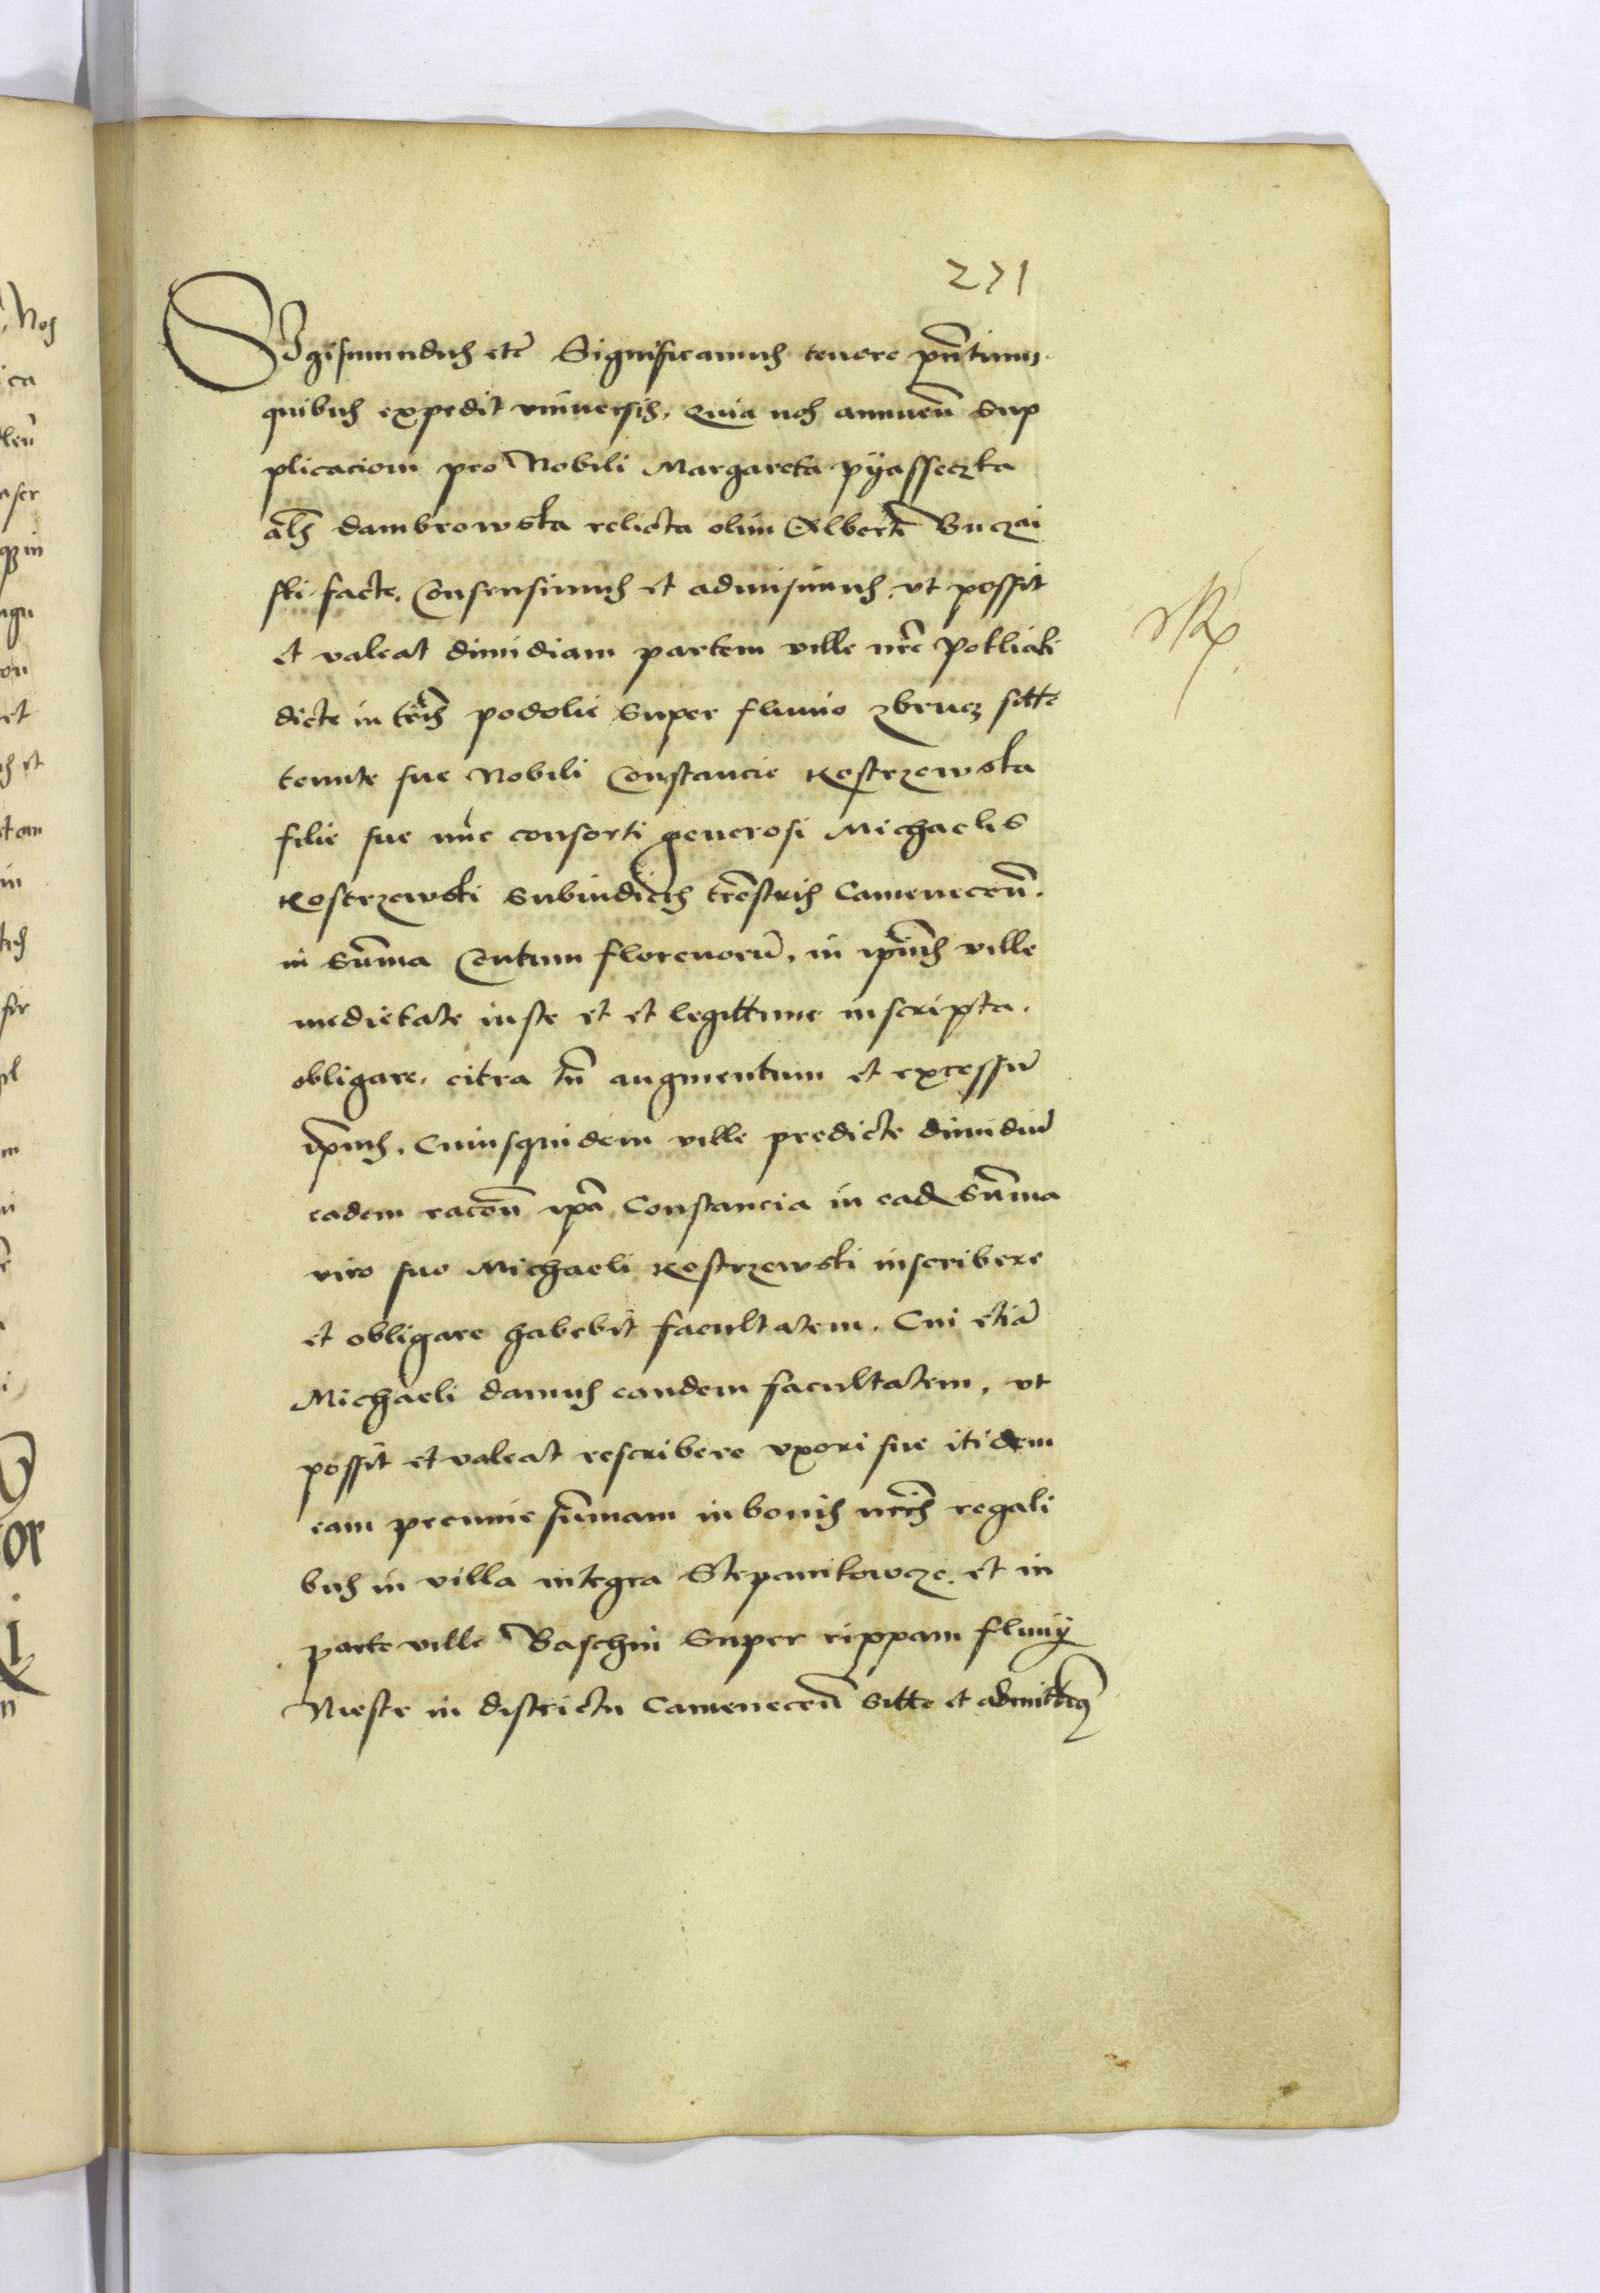 271
Sigismundus etc̄ Significamus tenore pn̄tium
quibus expedit vniuersis. Quia nos annuen̄ Sup
plicacioni pro Nobili Margareta pyasseczka
als̄ dambrowska relicta olim Alberti Buczai
ski facte. Consensimus et admisimus. vt possit
et valeat dimidiam partem ville nr̄e
dicte in terris podolie Super fluuio zbrucz sitte
tenute sue Nobili Constancie Kostrzewska
filie sue nūc consorti generosi Michaelis
Kostrzewski Subiudicis tr̄estris Camenecen̄.
in Sum̄a Centum florenorū. in ip̄ius ville
medietate iuste et et legittime inscripta.
obligare. citra tn̄ augmentum et excessū
ip̄ius. Cuiusquidem ville predicte dimidiū
eadem racōn̄ ip̄a Constancia in ead Sum̄a
viro suo Michaeli Kostrzewski inscribere
et obligare habebit facultatem. Cui etiā
Michaeli damus eandem facultatem, vt
possit et valeat rescribere vxori sue itidem
eam pecunie sum̄am in bonis nr̄is regali
bus in villa integra Stepanikowcze. et in
parte ville Baschni Super rippam fluuy
Niestr in districtu Camenecen̄ Sitte et